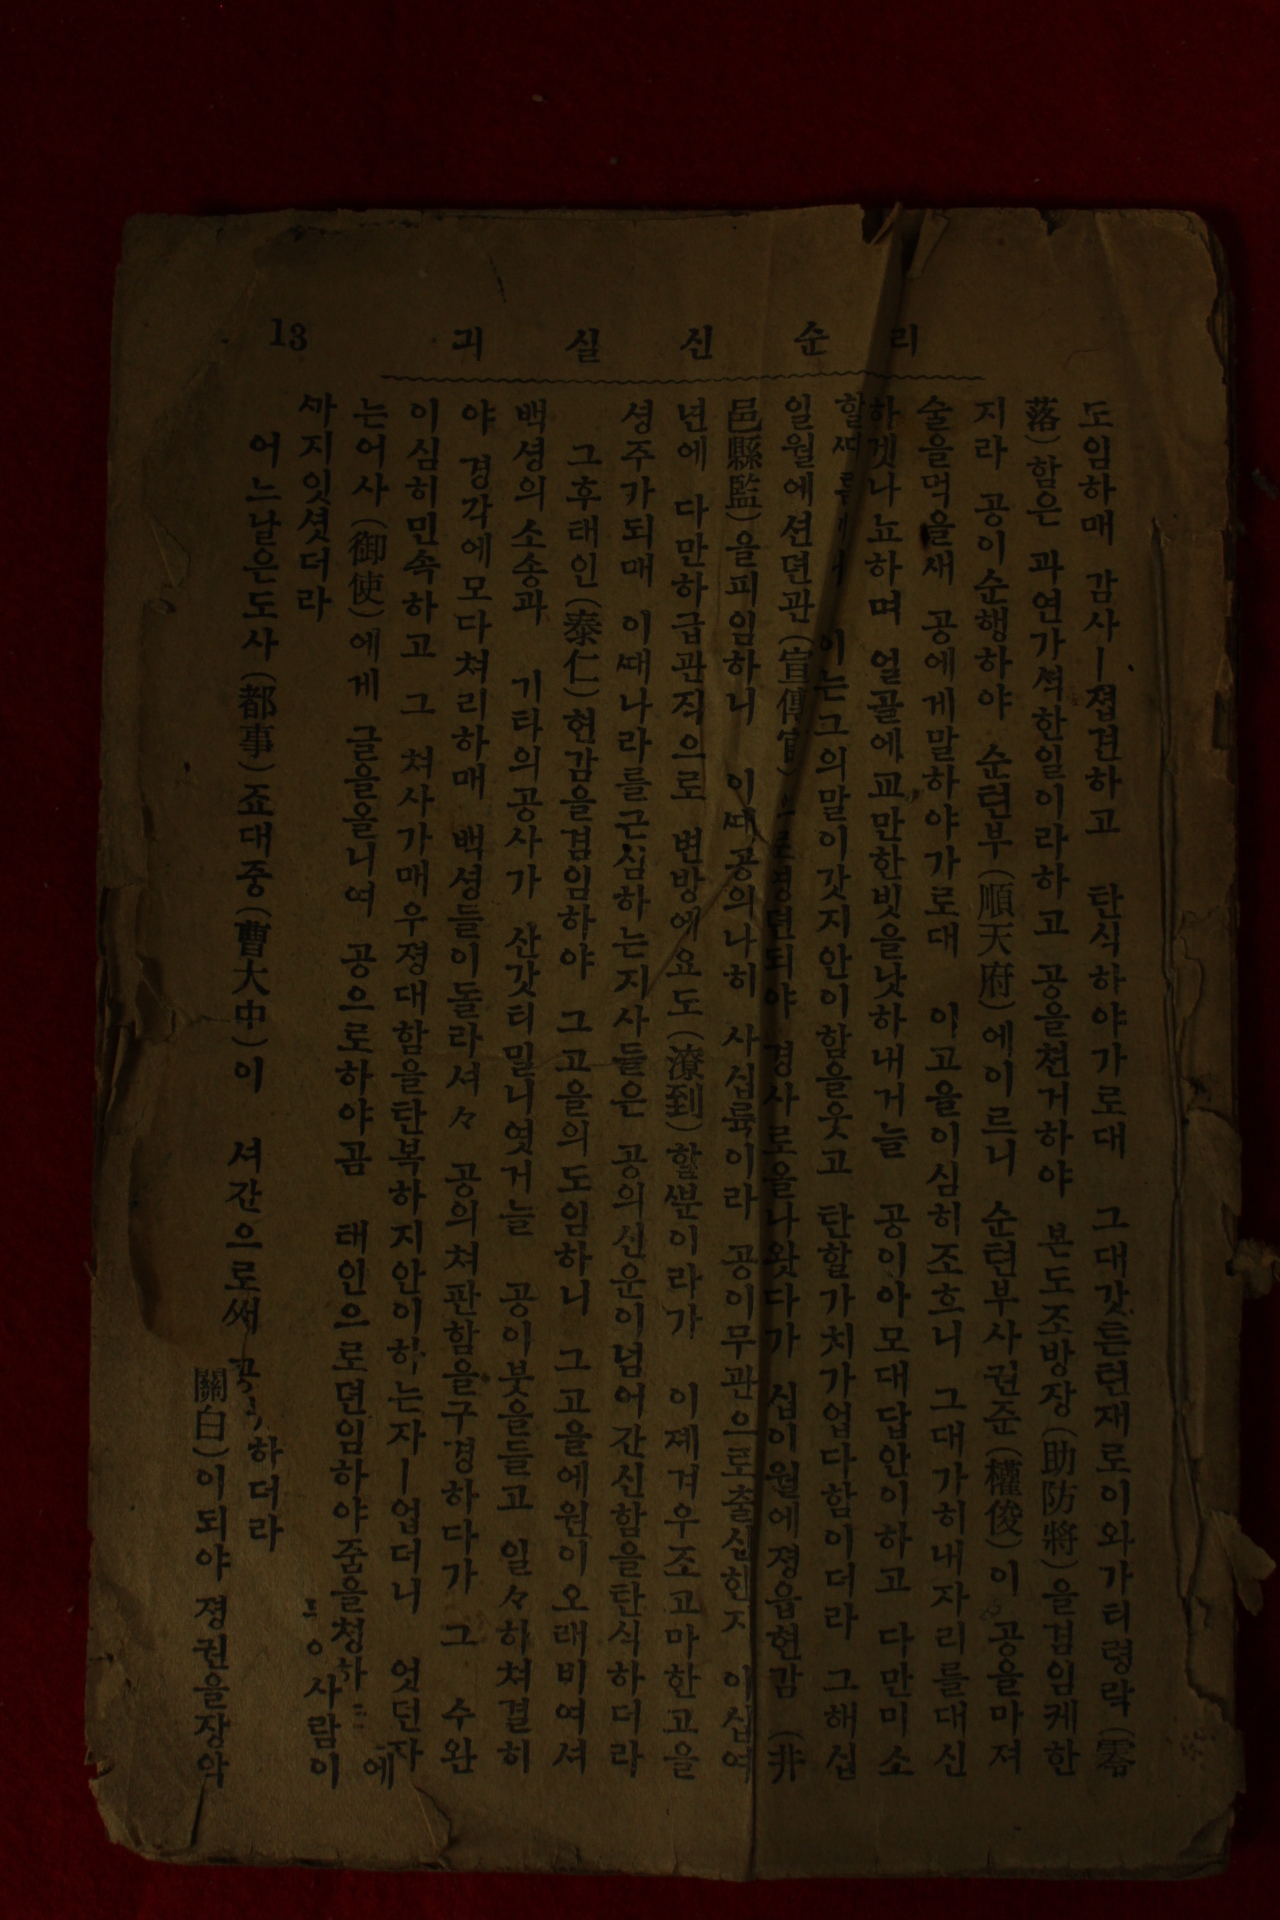 리순신실긔 13
도임하매 감사ㅣ졉견하고 탄식하야가로대 그대갓흔텬재로이와가티령락(零
落)함은 과연가셕한일이라하고 공을쳔거하야 본도조방장(助防將)을겸임케한
지라 공이순행하야 순텬부(順天府)에이르니 순텬부사권준(權俊)이 공을마져
술을먹을새 공에게말하야가로대 이고을이심히조흐니 그대가히내자리를대신
하겟나뇨하며 얼골에교만한빗을낫하내거늘 공이아모대답안이하고 다만미소
할ᄯᅡ름 이는그의말이갓지안이함을웃고 탄할가치가업다함이더라 그해십
일월에션뎐관(宣傳官) 되야 경사로올나왓다가 십이월에졍읍현감 (井
邑縣監)을피임하니 이ᄯᅢ공의나히 사십륙이라 공이무관으로출신한지 이십여
년에 다만하급관직으로 변방에요도(潦到)할ᄲᅮᆫ이라가 이제겨우조고마한고을
셩주가되매 이ᄯᅢ나라를근심하는지사들은 공의신운이넘어간신함을탄식하더라
그후태인(泰仁)현감을겸임하야 그고을의도임하니 그고을에원이오래비여셔
백셩의소송과 기타의공사가 산갓티밀니엿거늘 공이붓을들고 일々하쳐결히
야 경각에모다쳐리하매 백셩들이돌라셔々 공의쳐판함을구경하다가 그 수완
이심히민속하고 그 쳐사가매우졍대함을탄복하지안이하는자ㅣ업더니 엇던자
는어사(御使)에게 글을올니여 공으로하야곰 태인으로뎐임하야줌을쳥하 에
ᄭᅡ지잇셧더라 사람이
어느날은도사(都事)죠대중(曹大中)이 셔간으로써 하더라
關白)이되야 졍권을장악